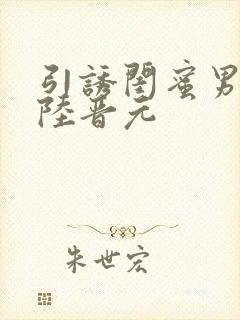 引誘閨蜜男
陸晋元
朱世宏